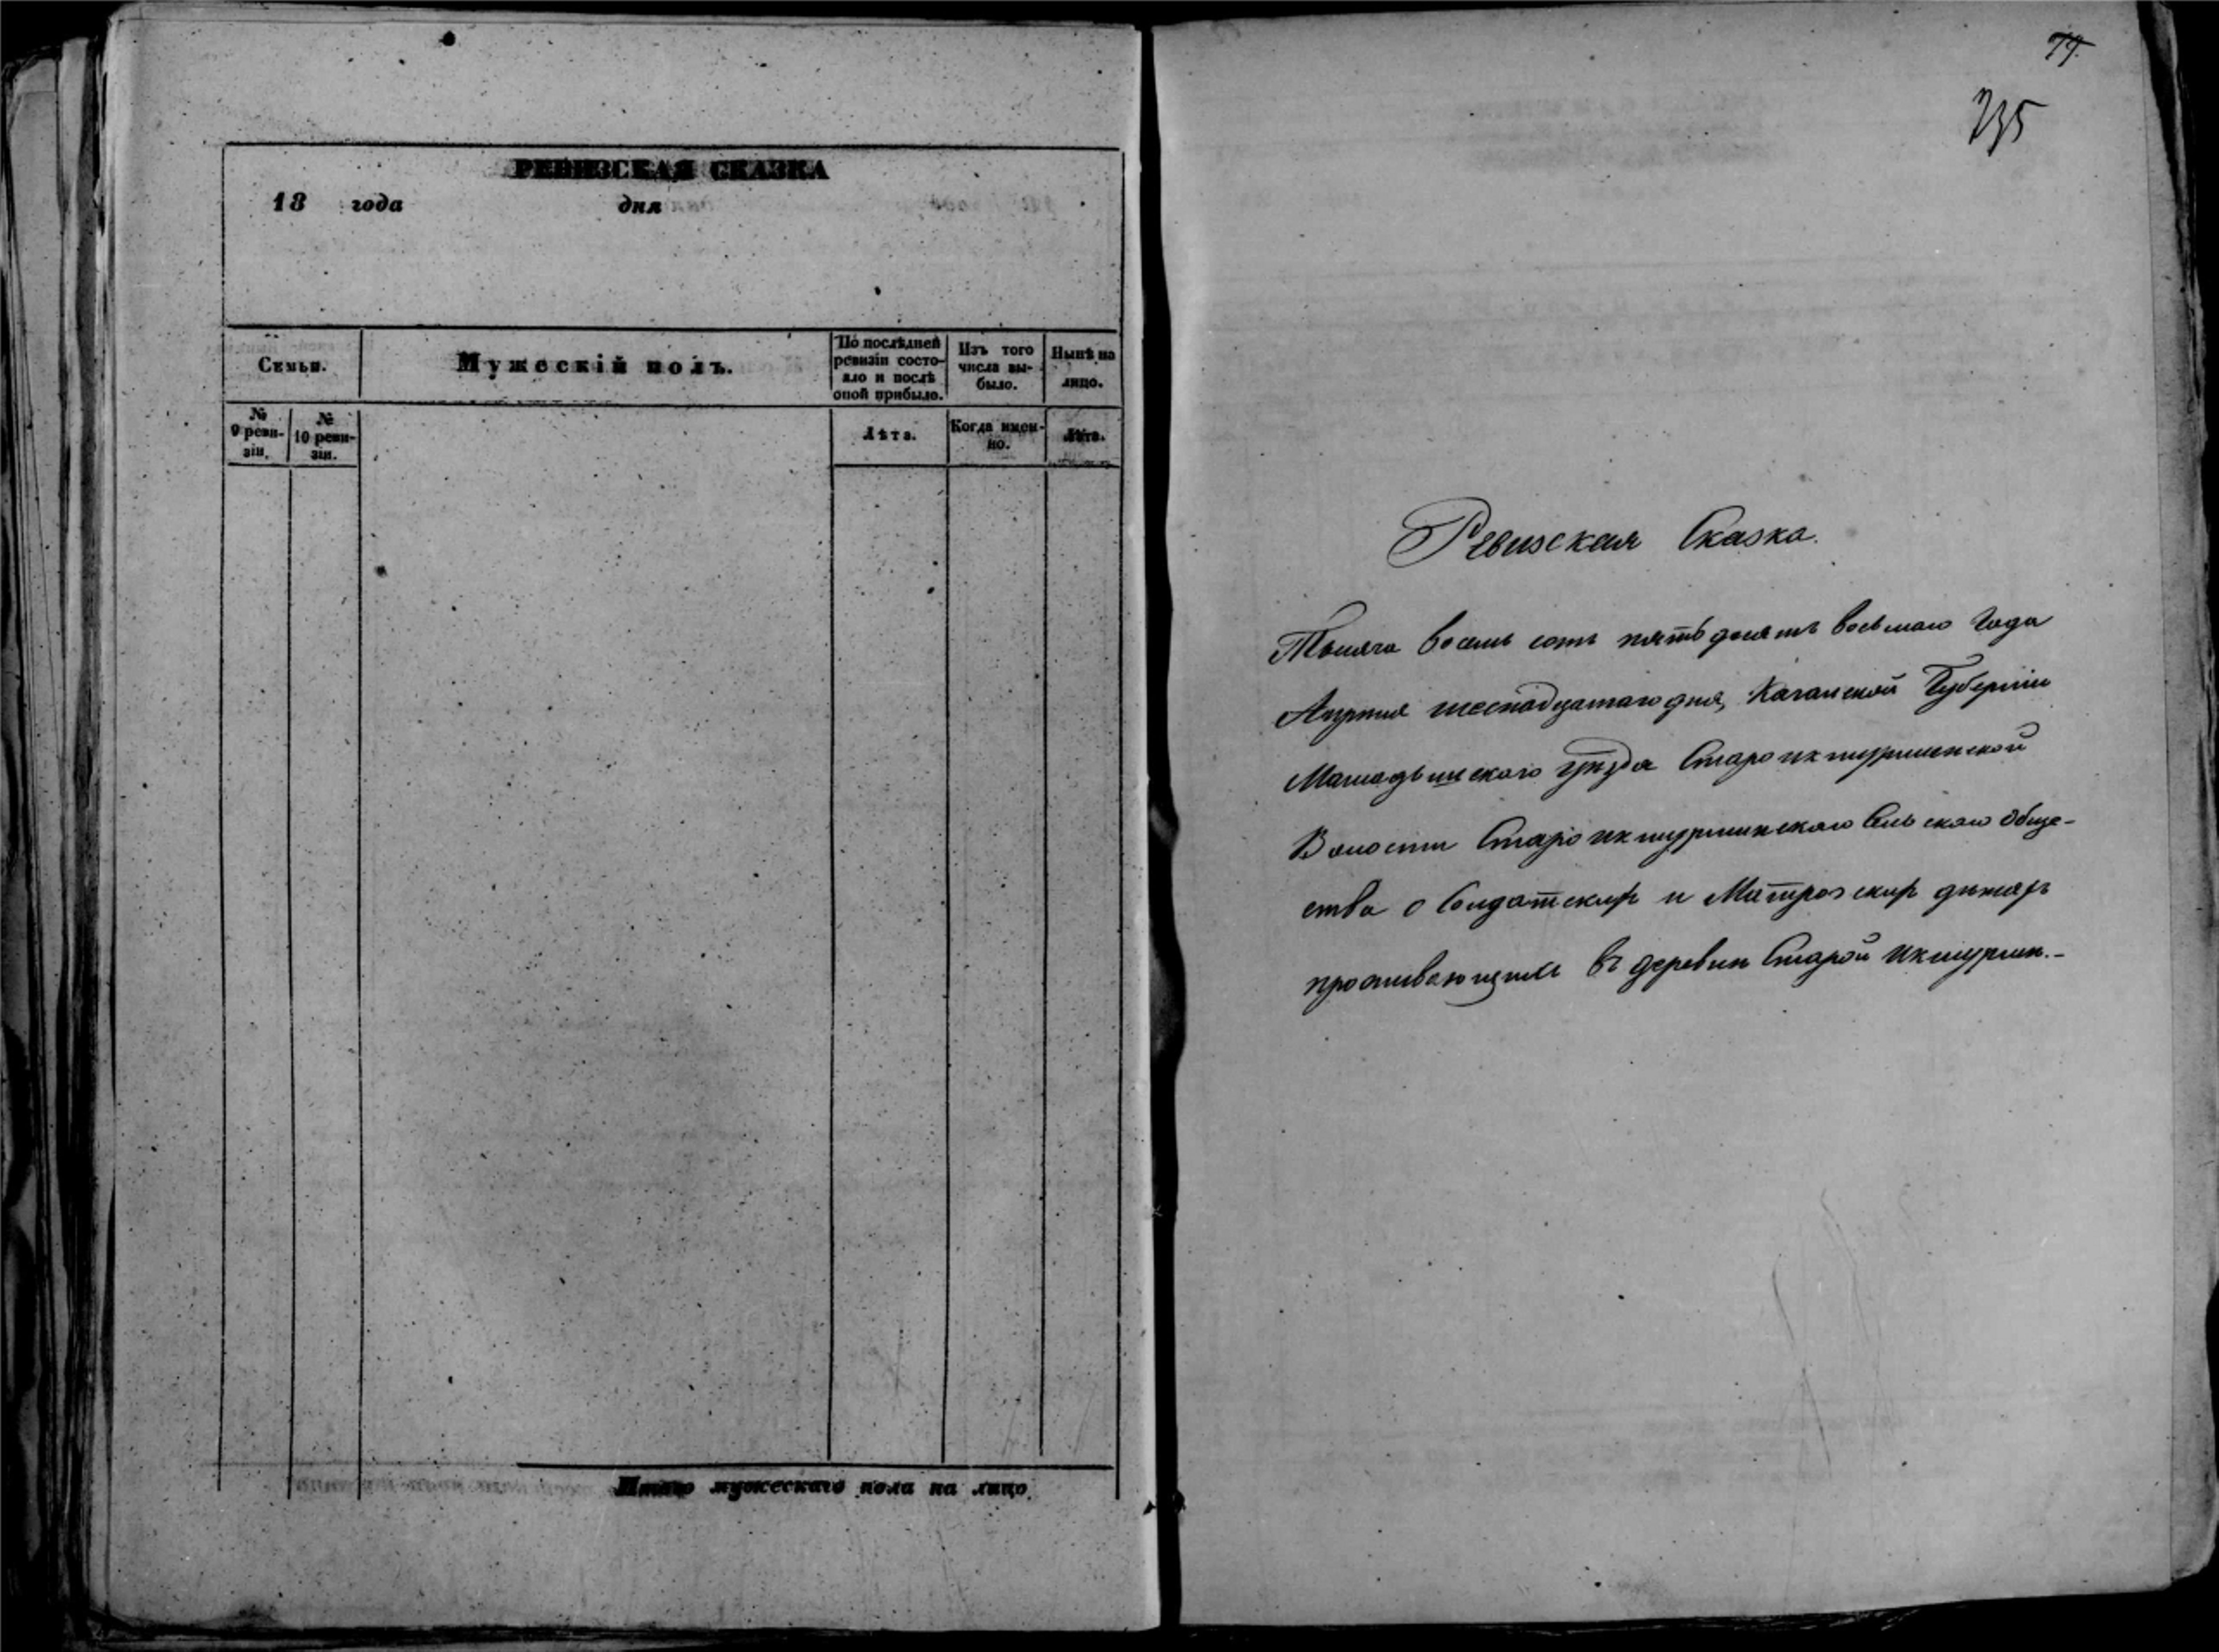 РЕВИЗСКАЯ СКАЗКА
18 года дня
Семьи.
Мужескій полъ.
По послѣдней ревизіи состояло и послѣ оной прибыло.
Изъ того числа выбыло.
Нынѣ на лицо.
№ 9 ревизіи.
№ 10 ревизіи.
Лѣта.
Когда именно.
Лѣта.
Итого мужескаго пола на лицо
77.
235
Ревизская Сказка.
Тысяча восемь сотъ пятьдесятъ восьмаго года
Апрѣля шеснадцатаго дня, Казанской Губерніи
Мамадышскаго уѣзда Староикшурминской
Волости Староикшурминскаго Сельскаго обще-
ства о Солдатскихъ и Матрозскихъ дѣтяхъ
проживающихъ въ деревнѣ Старой Икшурмѣ.-